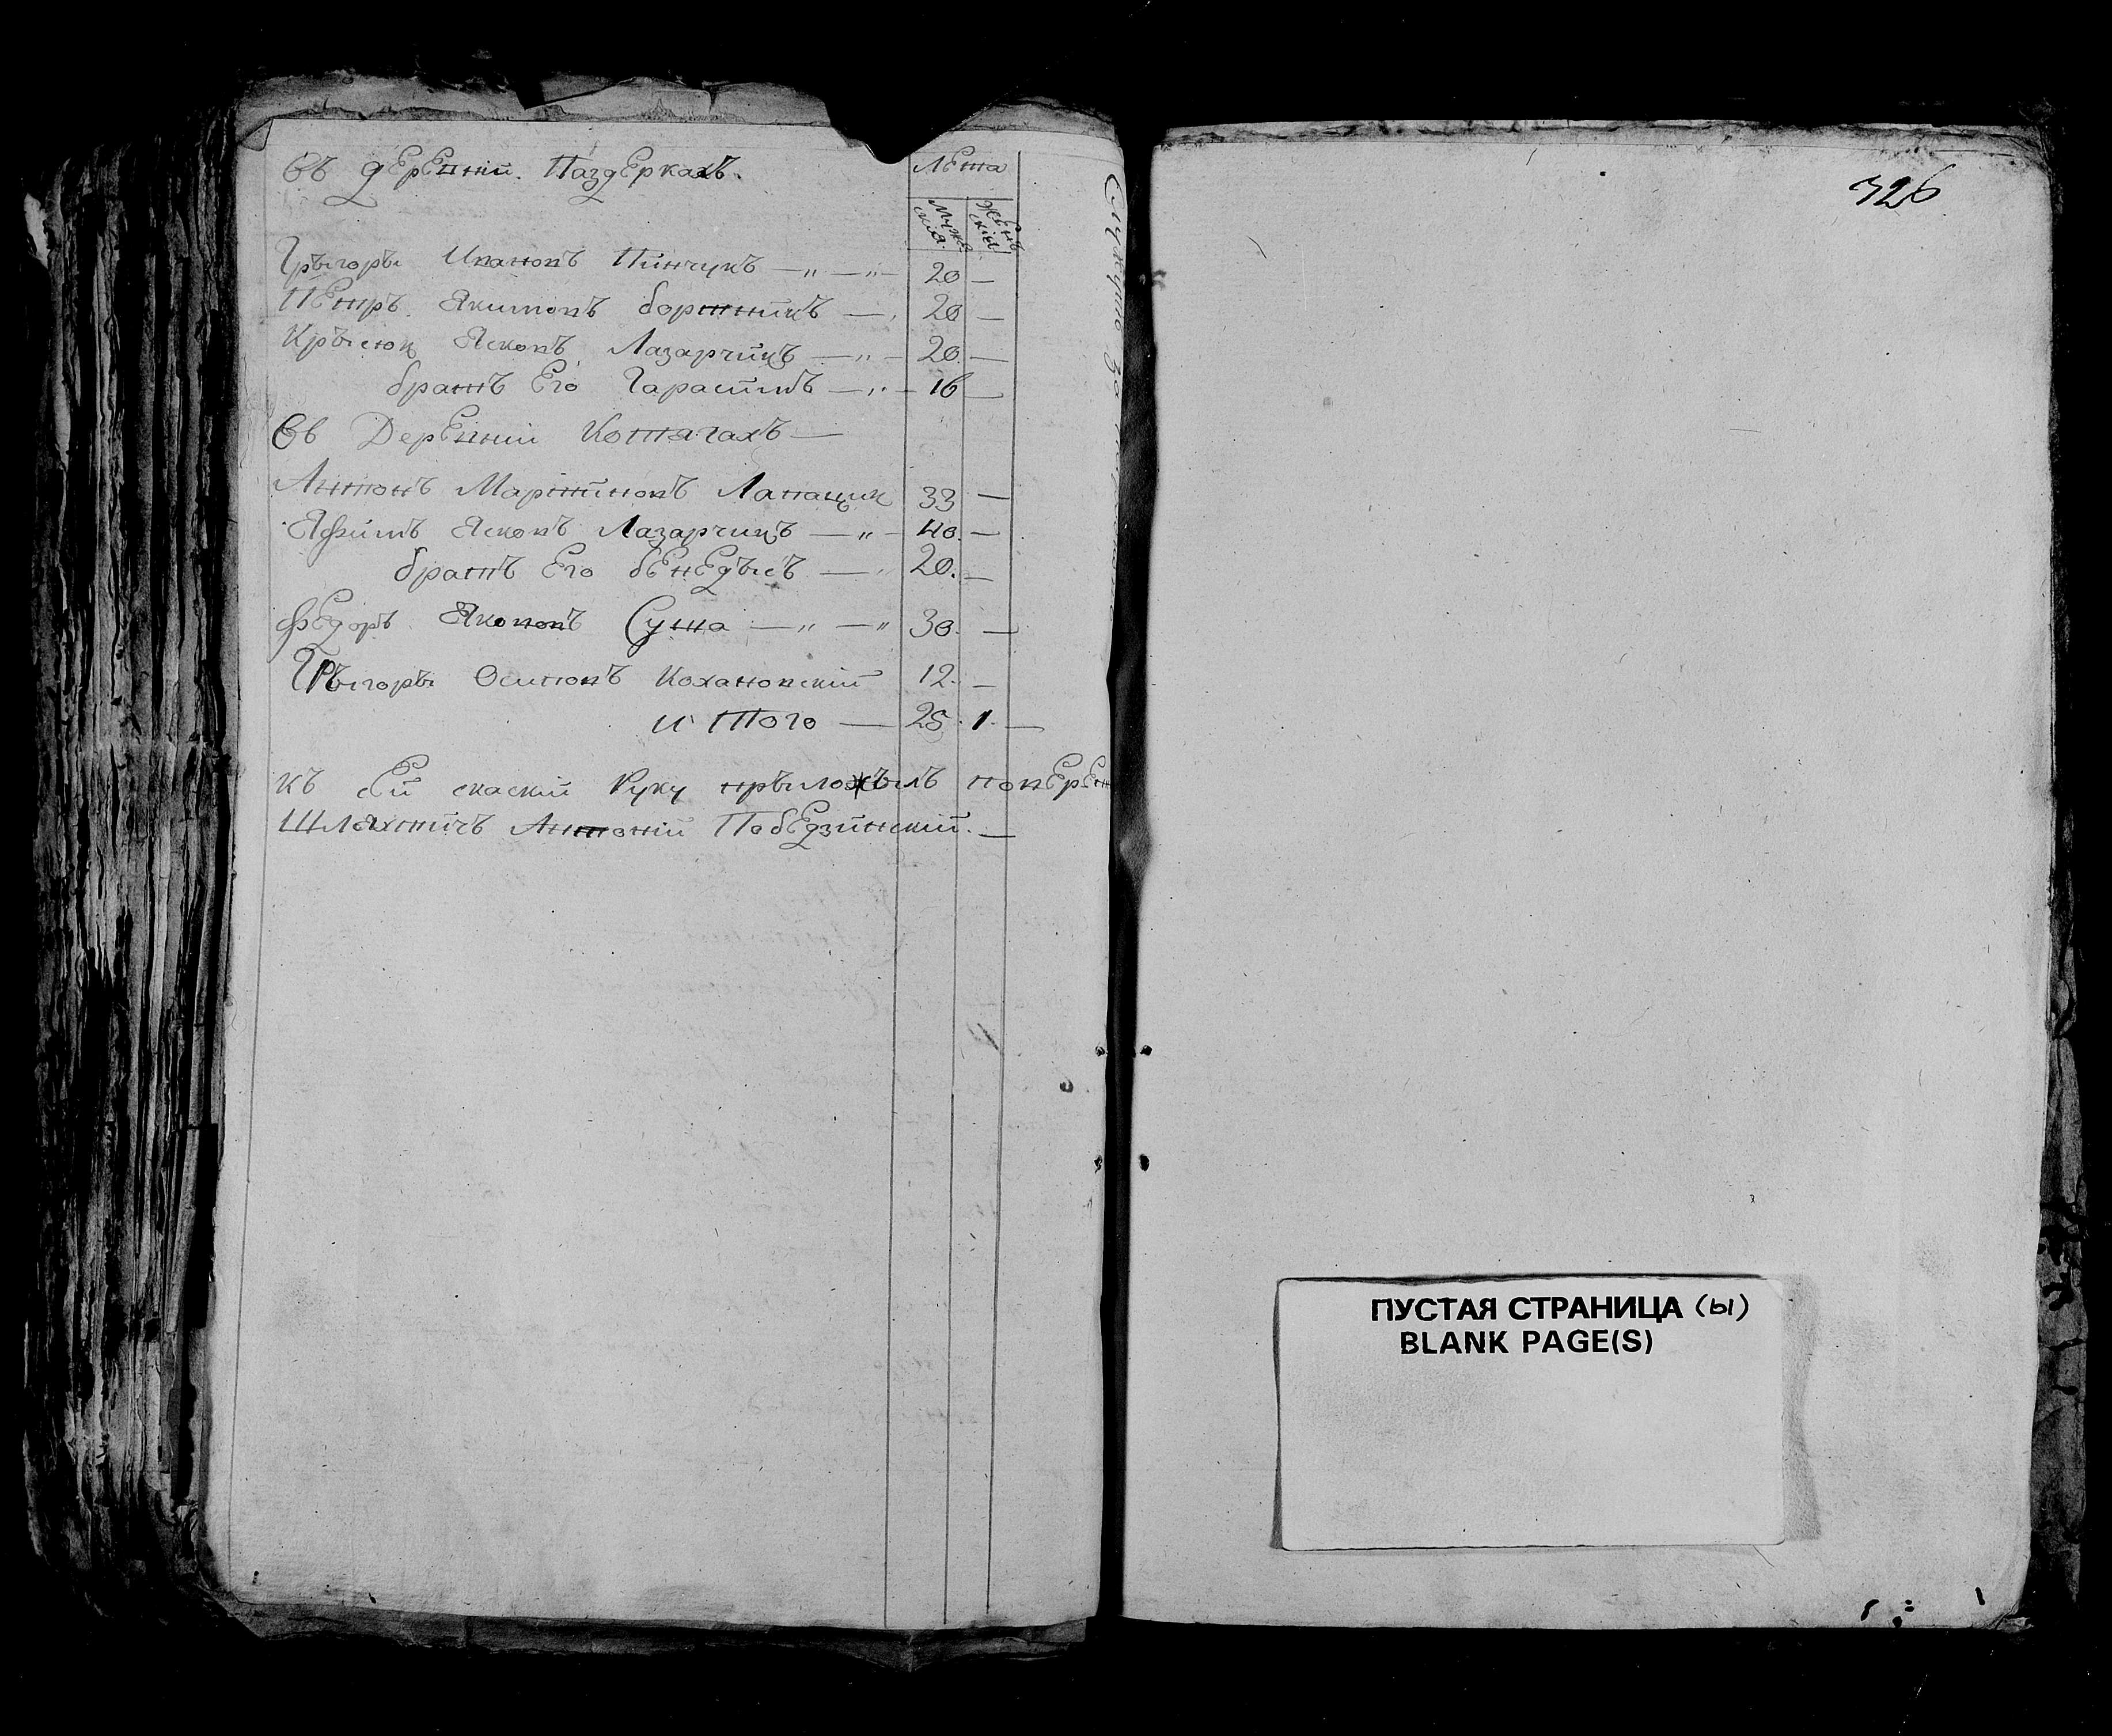 въ дерєвни. Паздеркахъ.
Лета
Мужескiя. Женскiя
Грыгоры Ивановъ Пинчукъ — 20 —
Петръ Якимовъ бортникъ — 20 —
Крысюк Ясковъ Лазарчикъ — 20. —
братъ Его Гарасимъ — 16 —
Въ Деревни Котягахъ —
Антонъ Мартиновъ Лапацик 33 —
Яфимъ Ясковъ Лазарчикъ — 40. —
братъ Его бенедысъ — 20. —
Федоръ Яковов Суша — 30. —
Грыгоры Осиповъ Кохановский 12. —
и Того — 25. 1. —
къ Сей скаски Руку прыложылъ поверен
Шляхтичъ Антоній Победзинский. —
Служуно за
326
ПУСТАЯ СТРАНИЦА (ы)
BLANK PAGE(S)